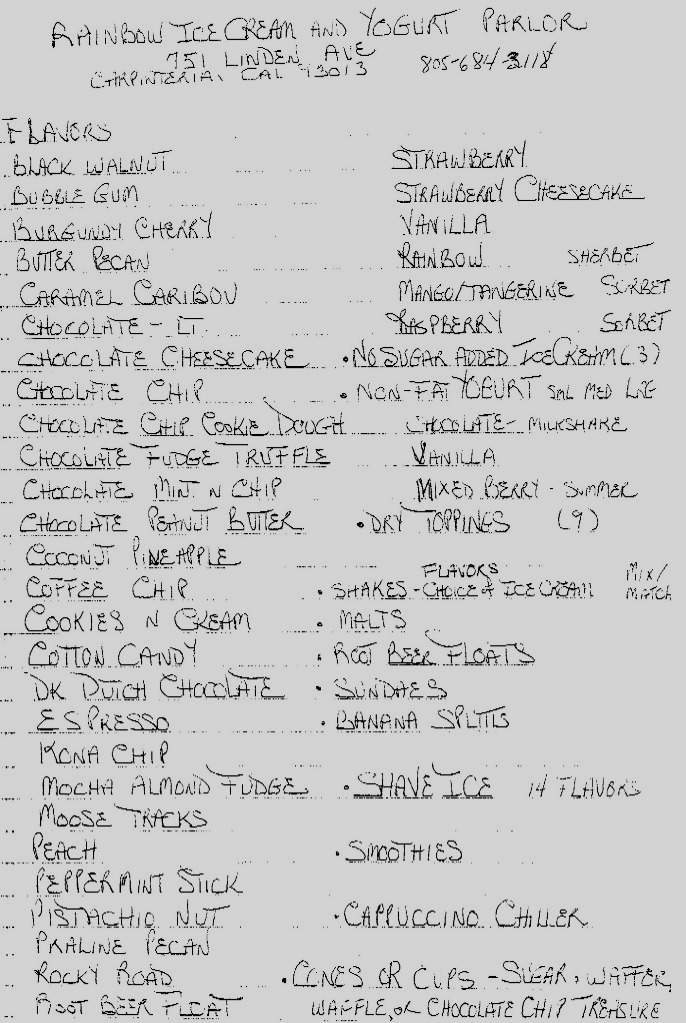 RAINBOW ICE CREAM AND YOGURT PARLOR
751 LINDEN AVE
CARPINTERIA, CAL 93013
805-684-2118
FLAVORS
BLACK WALNUT
BUBBLE GUM
BURGUNDY CHERRY
BUTTER PECAN
CARAMEL CARIBOU
CHOCOLATE - LT.
CHOCOLATE CHEESECAKE
CHOCOLATE CHIP
CHOCOLATE CHIP COOKIE DOUGH
CHOCOLATE FUDGE TRUFFLE
CHOCOLATE MINT N CHIP
CHOCOLATE PEANUT BUTTER
COCONUT PINEAPPLE
COFFEE CHIP
COOKIES N CREAM
COTTON CANDY
DK DUTCH CHOCOLATE
ESPRESSO
KONA CHIP
MOCHA ALMOND FUDGE
MOOSE TRACKS
PEACH
PEPPERMINT STICK
PISTACHIO NUT
PRALINE PECAN
ROCKY ROAD
ROOT BEER FLOAT
STRAWBERRY
STRAWBERRY CHEESECAKE
VANILLA
RAINBOW SHERBET
MANGO/TANGERINE SORBET
RASPBERRY SORBET
• NO SUGAR ADDED ICE CREAM (3)
• NON-FAT YOGURT SML MED LRG
CHOCOLATE - MILKSHAKE
VANILLA
MIXED BERRY - SUMMER
• DRY TOPPINGS (9)
FLAVORS MIX/
• SHAKES - CHOICE of ICE CREAM MATCH
• MALTS
• ROOT BEER FLOATS
• SUNDAES
• BANANA SPLITS
• SHAVE ICE 14 FLAVORS
• SMOOTHIES
• CAPPUCCINO CHILLER
• CONES OR CUPS - SUGAR, WAFFER,
WAFFLE, or CHOCOLATE CHIP TREASURE